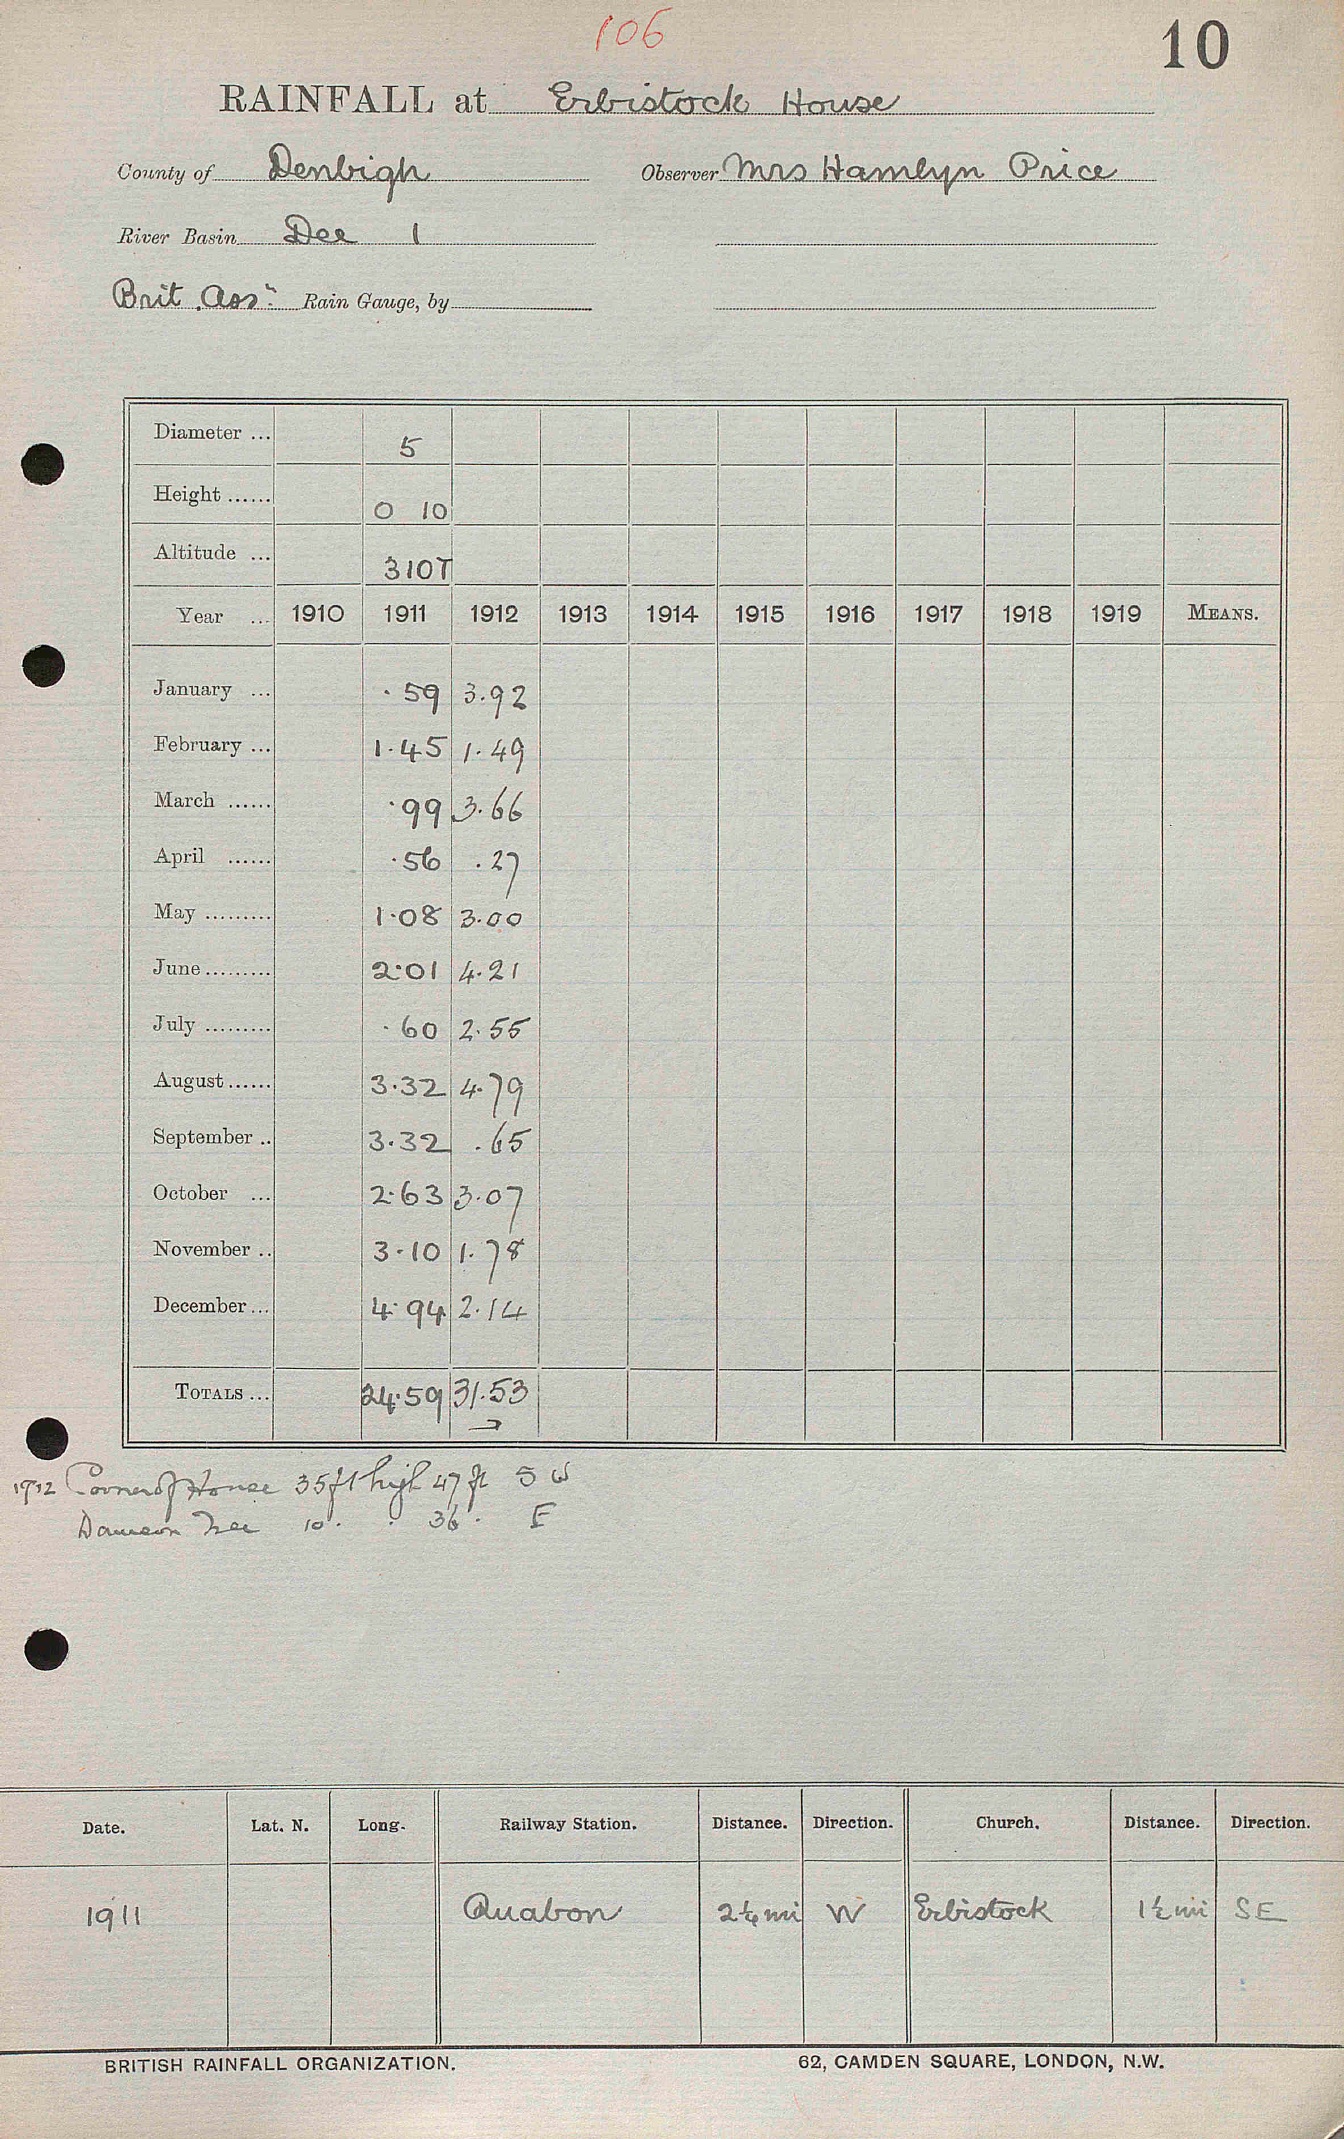 106
10
RAINFALL at Erbistock House
County of Denbigh Observer Mrs Hamlyn Price
River Basin Dee 1
Brit. Assn. Rain Gauge, by
Diameter ... 5
Height ...... 0 10
Altitude ... 310T
Year ... 1910 1911 1912 1913 1914 1915 1916 1917 1918 1919 MEANS.
January ... .59 3.92
February ... 1.45 1.49
March ...... .99 3.66
April ...... .56 .27
May ......... 1.08 3.00
June ......... 2.01 4.21
July ......... .60 2.55
August ...... 3.32 4.79
September .. 3.32 .65
October ... 2.63 3.07
November .. 3.10 1.78
December ... 4.94 2.14
TOTALS ... 24.59 31.53
1912 Corner of House 35 ft high 47 ft SW
Damson Tree 10 . . 36 . E
Date. Lat. N. Long. Railway Station. Distance. Direction. Church. Distance. Direction.
1911 Ruabon 2¼ mi W Erbistock 1½ mi SE
BRITISH RAINFALL ORGANIZATION. 62, CAMDEN SQUARE, LONDON, N.W.